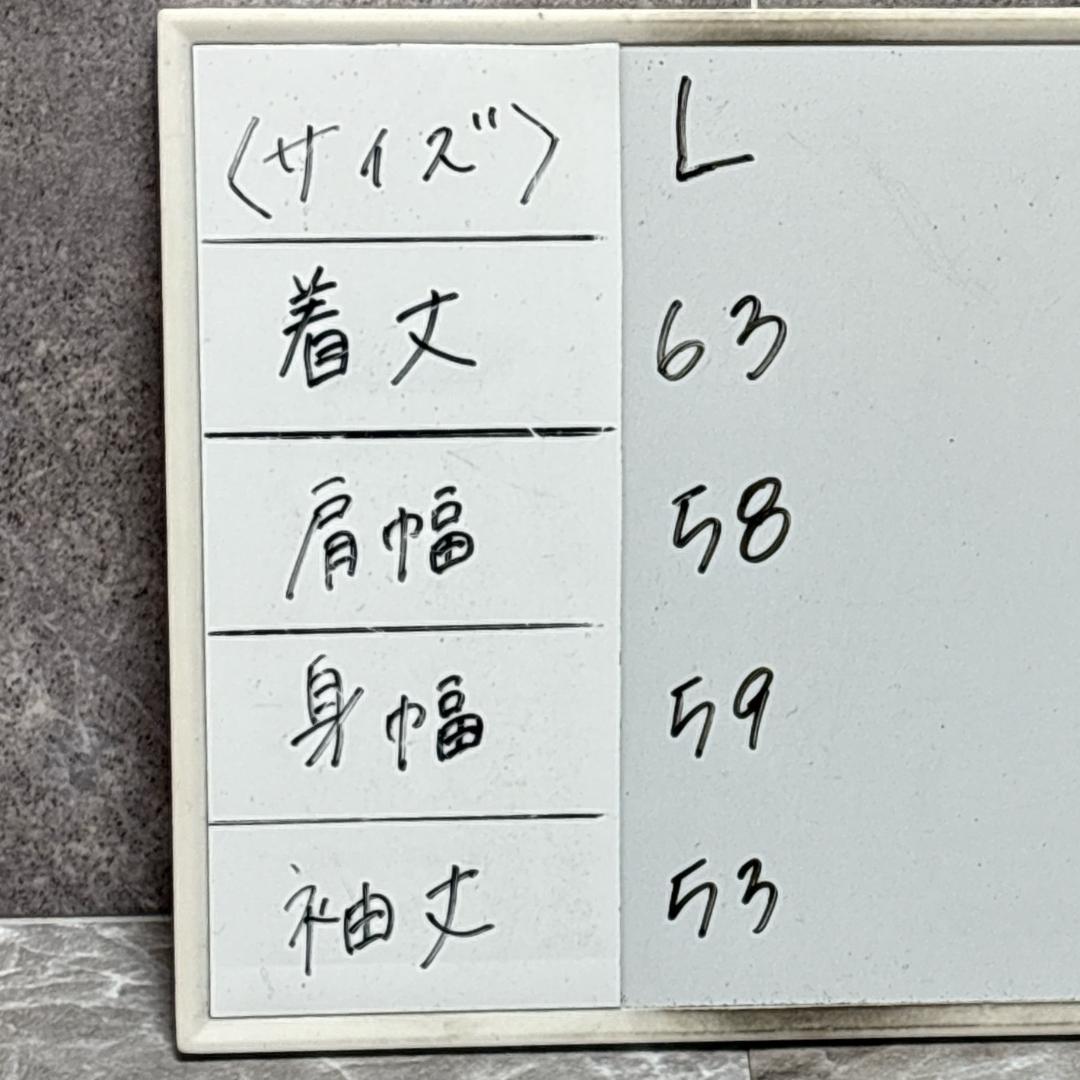 〈サイズ〉 L
着丈 63
肩幅 58
身幅 59
袖丈 53